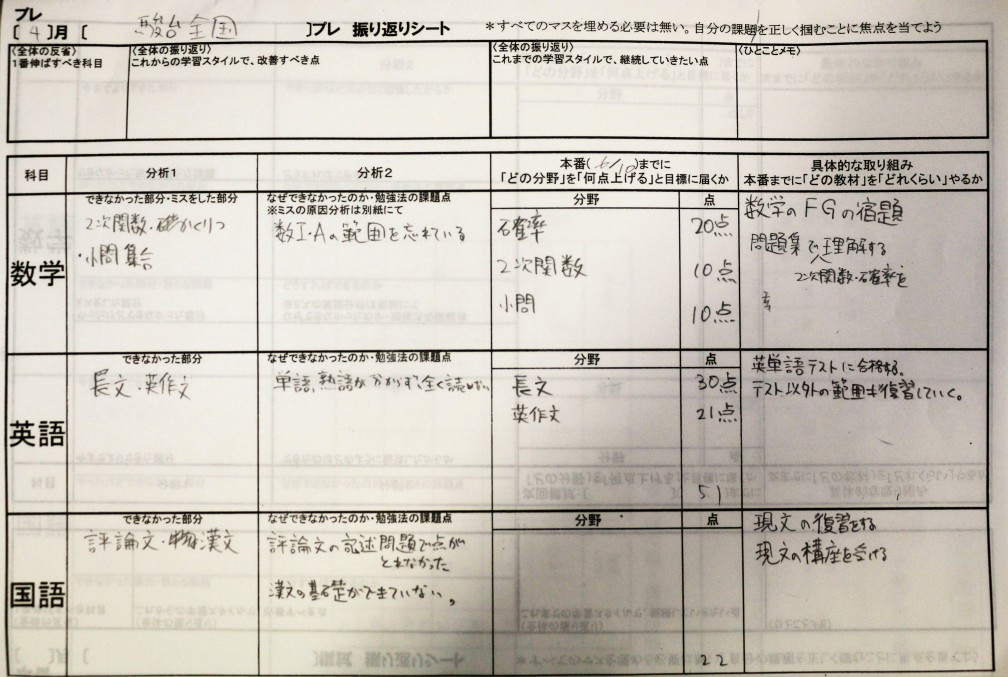 プレ
[ 4 ]月 [ 駿台全国 ]プレ 振り返りシート ＊すべてのマスを埋める必要は無い。自分の課題を正しく掴むことに焦点を当てよう
〈全体の反省〉
1番伸ばすべき科目
〈全体の振り返り〉
これからの学習スタイルで、改善すべき点
〈全体の振り返り〉
これまでの学習スタイルで、継続していきたい点
〈ひとことメモ〉
科目
分析1
分析2
本番( 6/10 )までに
「どの分野」を「何点上げる」と目標に届くか
具体的な取り組み
本番までに「どの教材」を「どれくらい」やるか
数学
できなかった部分・ミスをした部分
2次関数・確かくりつ
・小問集合
なぜできなかったのか・勉強法の課題点
※ミスの原因分析は別紙にて
数I・Aの範囲を忘れている
分野 点
確率 20点
2次関数 10点
小問 10点
数学のFGの宿題
問題集で理解する
2次関数・確率を
英語
できなかった部分
長文・英作文
なぜできなかったのか・勉強法の課題点
単語、熟語が分からず全く読めない
分野 点
長文 30点
英作文 21点
51
英単語テストに合格する。
テスト以外の範囲も復習していく。
国語
できなかった部分
評論文・漢文
なぜできなかったのか・勉強法の課題点
評論文の記述問題で点が
とれなかった
漢文の基礎ができていない。
分野 点
22
現文の復習をする
現文の講座を受ける